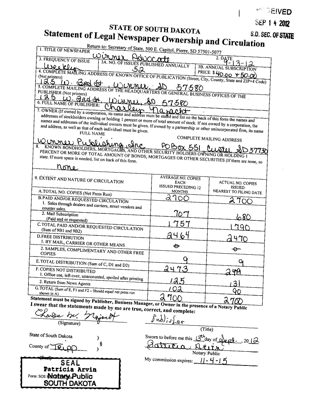 RECEIVED
SEP 14 2012
S.D. SEC. OF STATE
STATE OF SOUTH DAKOTA
Statement of Legal Newspaper Ownership and Circulation
Return to: Secretary of State, 500 E. Capitol, Pierre, SD 57501-5077
1. TITLE OF NEWSPAPER Winner Advocate
2. DATE 9-13-12
3. FREQUENCY OF ISSUE Weekly
3A. NO. OF ISSUES PUBLISHED ANNUALLY
3B. ANNUAL SUBSCRIPTION
PRICE
4. COMPLETE MAILING ADDRESS OF KNOWN OFFICE OF PUBLICATION (Street, City, County, State and ZIP+4 Code)
Winner SD 57580
5. COMPLETE MAILING ADDRESS OF THE HEADQUARTERS OR GENERAL BUSINESS OFFICES OF THE
PUBLISHER (Not printer)
Winner, SD 57580
6. FULL NAME OF PUBLISHER: Charley Najacht
7. OWNER (If owned by a corporation, its name and address must be stated and
FULL NAME
COMPLETE MAILING ADDRESS
Winner Publishing Inc PO Box 551 Custer SD 57730
8. KNOWN BONDHOLDERS, MORTGAGEES, AND OTHER SECURITY HOLDERS OWNING OR HOLDING 1
PERCENT OR MORE OF TOTAL AMOUNT OF BONDS, MORTGAGES OR OTHER SECURITIES (If there are none, so
state. If more space is needed, list on back of this form.
none
9. EXTENT AND NATURE OF CIRCULATION
AVERAGE NO. COPIES EACH ISSUED PRECEDING 12 MONTHS
ACTUAL NO. COPIES ISSUED NEAREST TO FILING DATE
A. TOTAL NO. COPIES (Net Press Run) 2700 2700
B. PAID AND/OR REQUESTED CIRCULATION
1. Sales through dealers and carriers, street vendors and
counter sales.
2. Mail Subscription
(Paid and or requested) 707 680
C. TOTAL PAID AND/OR REQUESTED CIRCULATION
(Sum of 9B1 and 9B2) 1757 1790
2464 2470
D. FREE DISTRIBUTION
1. BY MAIL, CARRIER OR OTHER MEANS
2. SAMPLES, COMPLIMENTARY AND OTHER FREE
COPIES 9 9
E. TOTAL DISTRIBUTION (Sum of C, D1 and D2) 2473
F. COPIES NOT DISTRIBUTED
1. Office use, left over, unaccounted, spoiled after printing 125 131
2. Return from News Agents 102 90
G. TOTAL (Sum of E, F1 and F2 - Should equal net press run
shown in A) 2700 2700
Statement must be signed by Publisher, Business Manager, or Owner in the presence of a Notary Public
I swear that the statements made by me are true, correct, and complete:
Publisher
(Signature)
(Title)
State of South Dakota )
County of Tripp )
Sworn to before me this 13th day of Sept. 2012
Patricia Arvin
Notary Public
My commission expires: 11-4-15
SEAL
Patricia Arvin
Notary Public
SOUTH DAKOTA